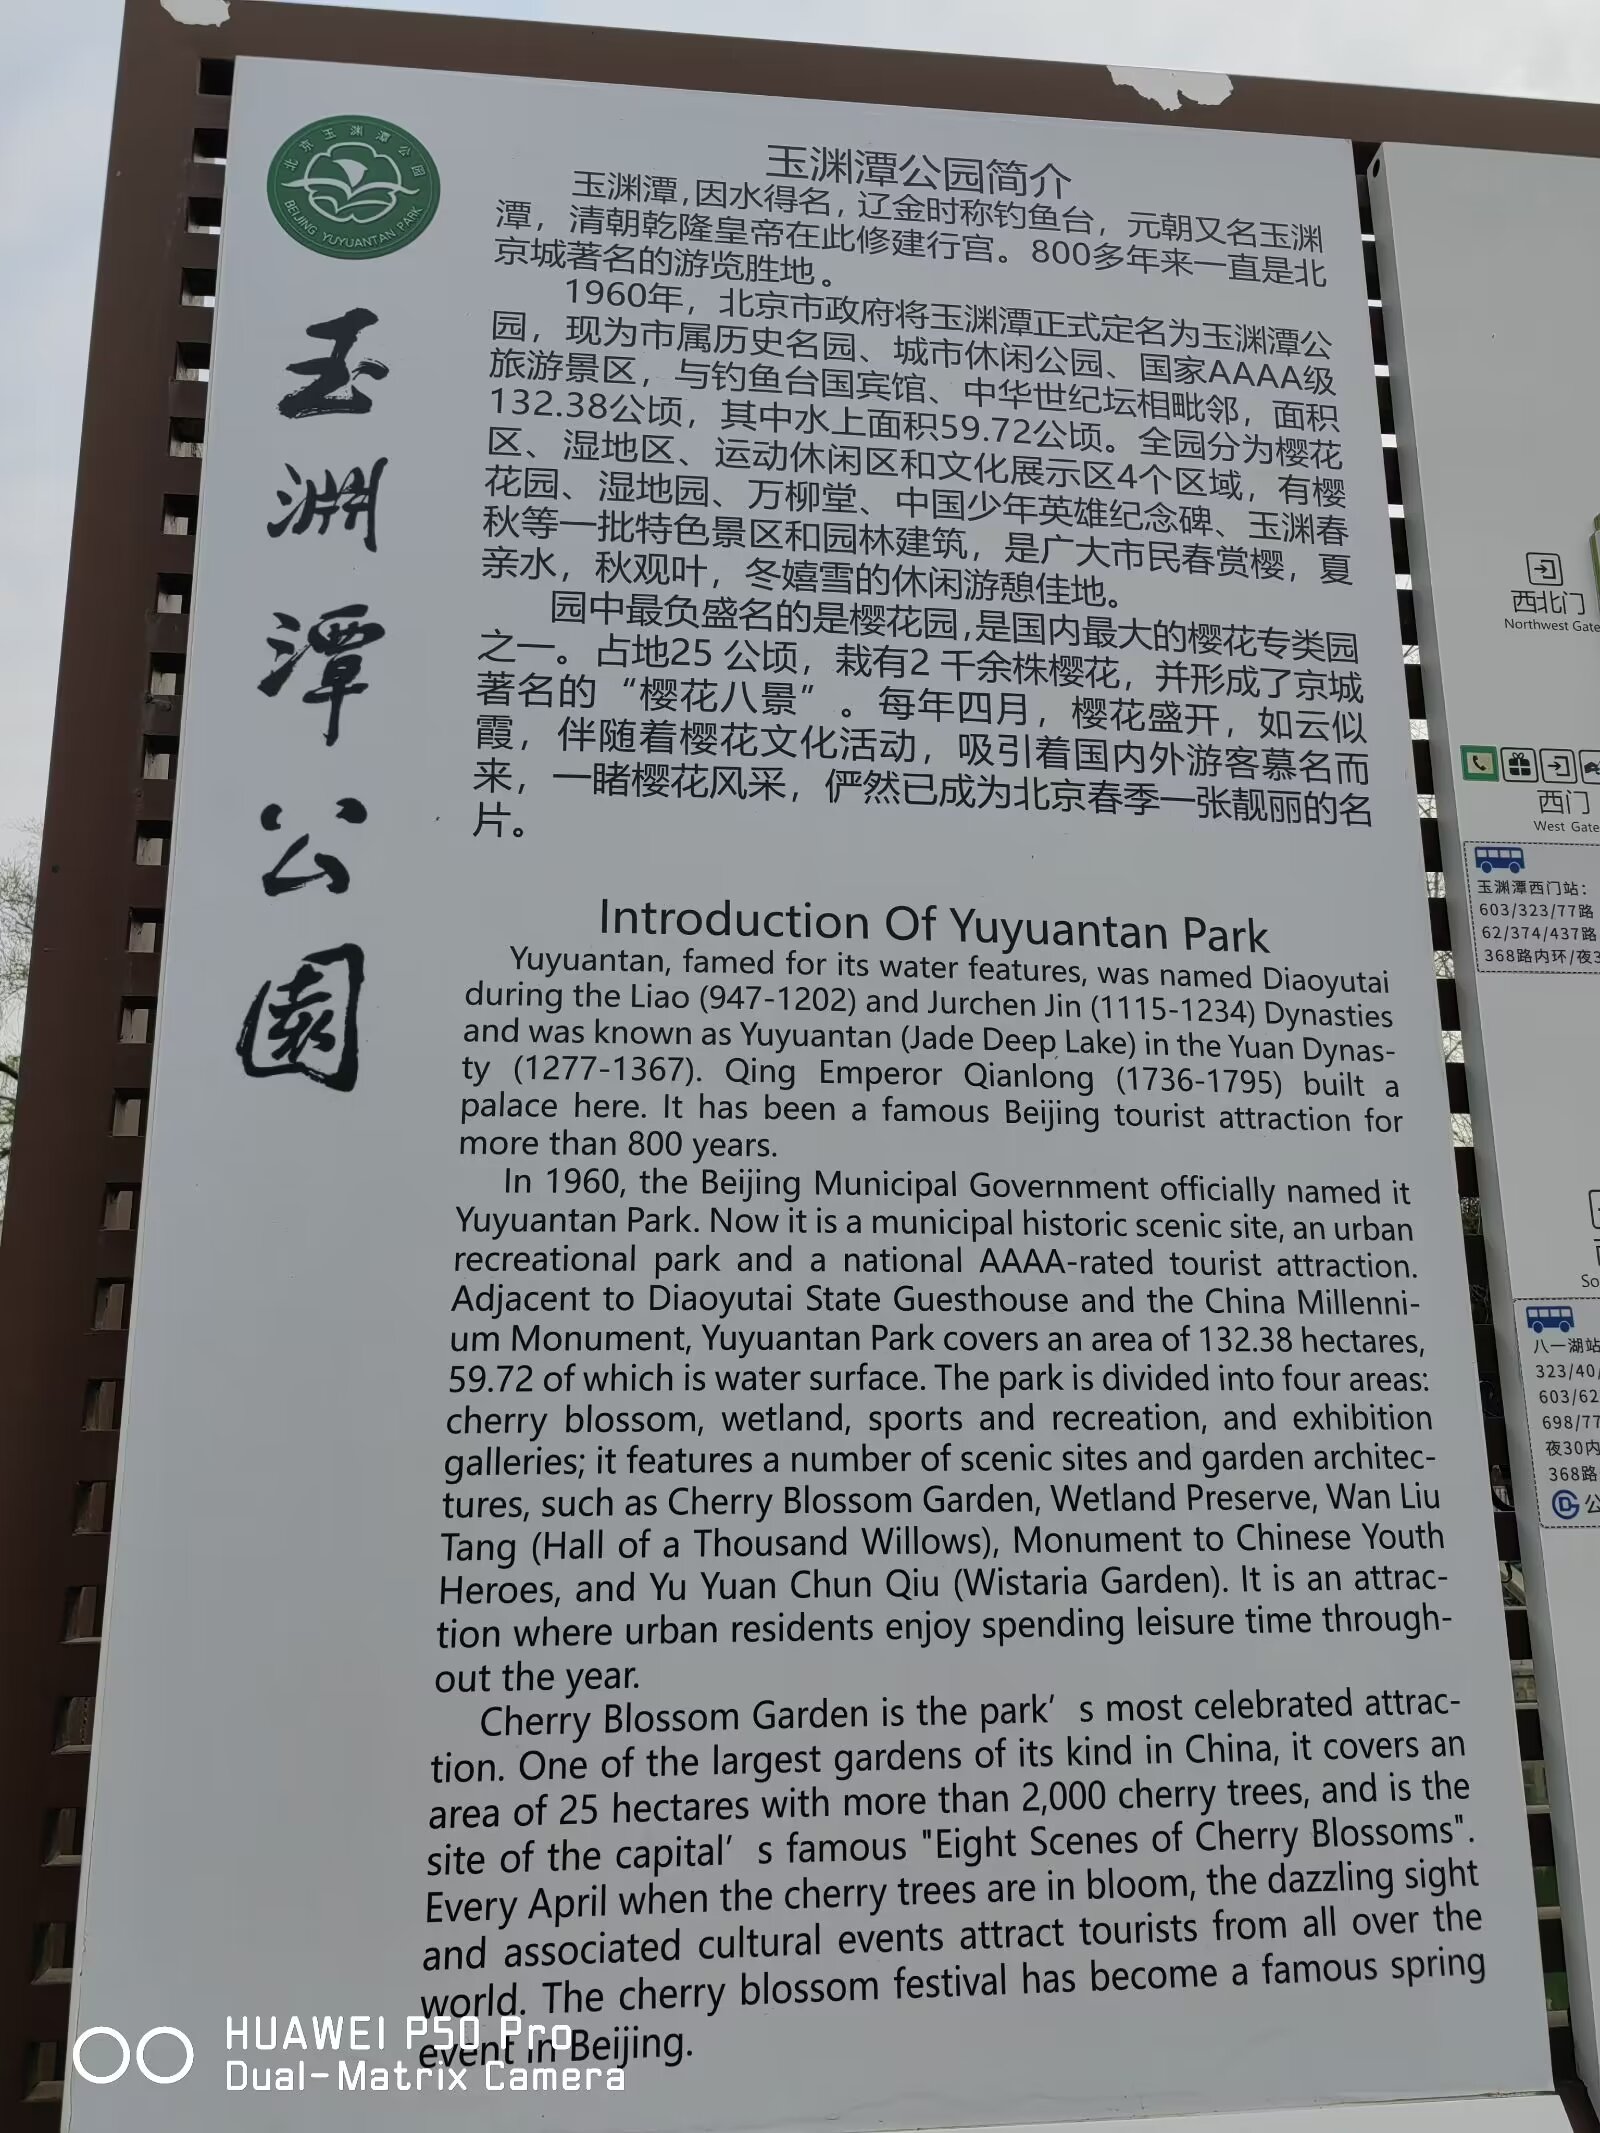 北京玉渊潭公园
BEIJING YUYUANTAN PARK
玉渊潭公园
玉渊潭公园简介
玉渊潭,因水得名,辽金时称钓鱼台，元朝又名玉渊
潭，清朝乾隆皇帝在此修建行宫。800多年来一直是北
京城著名的游览胜地。
1960年，北京市政府将玉渊潭正式定名为玉渊潭公
园，现为市属历史名园、城市休闲公园、国家AAAA级
旅游景区，与钓鱼台国宾馆、中华世纪坛相毗邻，面积
132.38公顷，其中水上面积59.72公顷。全园分为樱花
区、湿地区、运动休闲区和文化展示区4个区域，有樱
花园、湿地园、万柳堂、中国少年英雄纪念碑、玉渊春
秋等一批特色景区和园林建筑，是广大市民春赏樱，夏
亲水，秋观叶，冬嬉雪的休闲游憩佳地。
园中最负盛名的是樱花园,是国内最大的樱花专类园
之一。占地25 公顷，栽有2 千余株樱花，并形成了京城
著名的“樱花八景”。每年四月，樱花盛开，如云似
霞，伴随着樱花文化活动，吸引着国内外游客慕名而
来，一睹樱花风采，俨然已成为北京春季一张靓丽的名
片。
Introduction Of Yuyuantan Park
Yuyuantan, famed for its water features, was named Diaoyutai
during the Liao (947-1202) and Jurchen Jin (1115-1234) Dynasties
and was known as Yuyuantan (Jade Deep Lake) in the Yuan Dynas-
ty (1277-1367). Qing Emperor Qianlong (1736-1795) built a
palace here. It has been a famous Beijing tourist attraction for
more than 800 years.
In 1960, the Beijing Municipal Government officially named it
Yuyuantan Park. Now it is a municipal historic scenic site, an urban
recreational park and a national AAAA-rated tourist attraction.
Adjacent to Diaoyutai State Guesthouse and the China Millenni-
um Monument, Yuyuantan Park covers an area of 132.38 hectares,
59.72 of which is water surface. The park is divided into four areas:
cherry blossom, wetland, sports and recreation, and exhibition
galleries; it features a number of scenic sites and garden architec-
tures, such as Cherry Blossom Garden, Wetland Preserve, Wan Liu
Tang (Hall of a Thousand Willows), Monument to Chinese Youth
Heroes, and Yu Yuan Chun Qiu (Wistaria Garden). It is an attrac-
tion where urban residents enjoy spending leisure time through-
out the year.
Cherry Blossom Garden is the park’s most celebrated attrac-
tion. One of the largest gardens of its kind in China, it covers an
area of 25 hectares with more than 2,000 cherry trees, and is the
site of the capital’s famous "Eight Scenes of Cherry Blossoms".
Every April when the cherry trees are in bloom, the dazzling sight
and associated cultural events attract tourists from all over the
world. The cherry blossom festival has become a famous spring
event in Beijing.
西北门
Northwest Gate
西门
West Gate
玉渊潭西门站：
603/323/77路
62/374/437路
368路内环/夜3
So
八一湖站
323/40/
603/62
698/77
夜30内
368路
公
HUAWEI P50 Pro
Dual-Matrix Camera